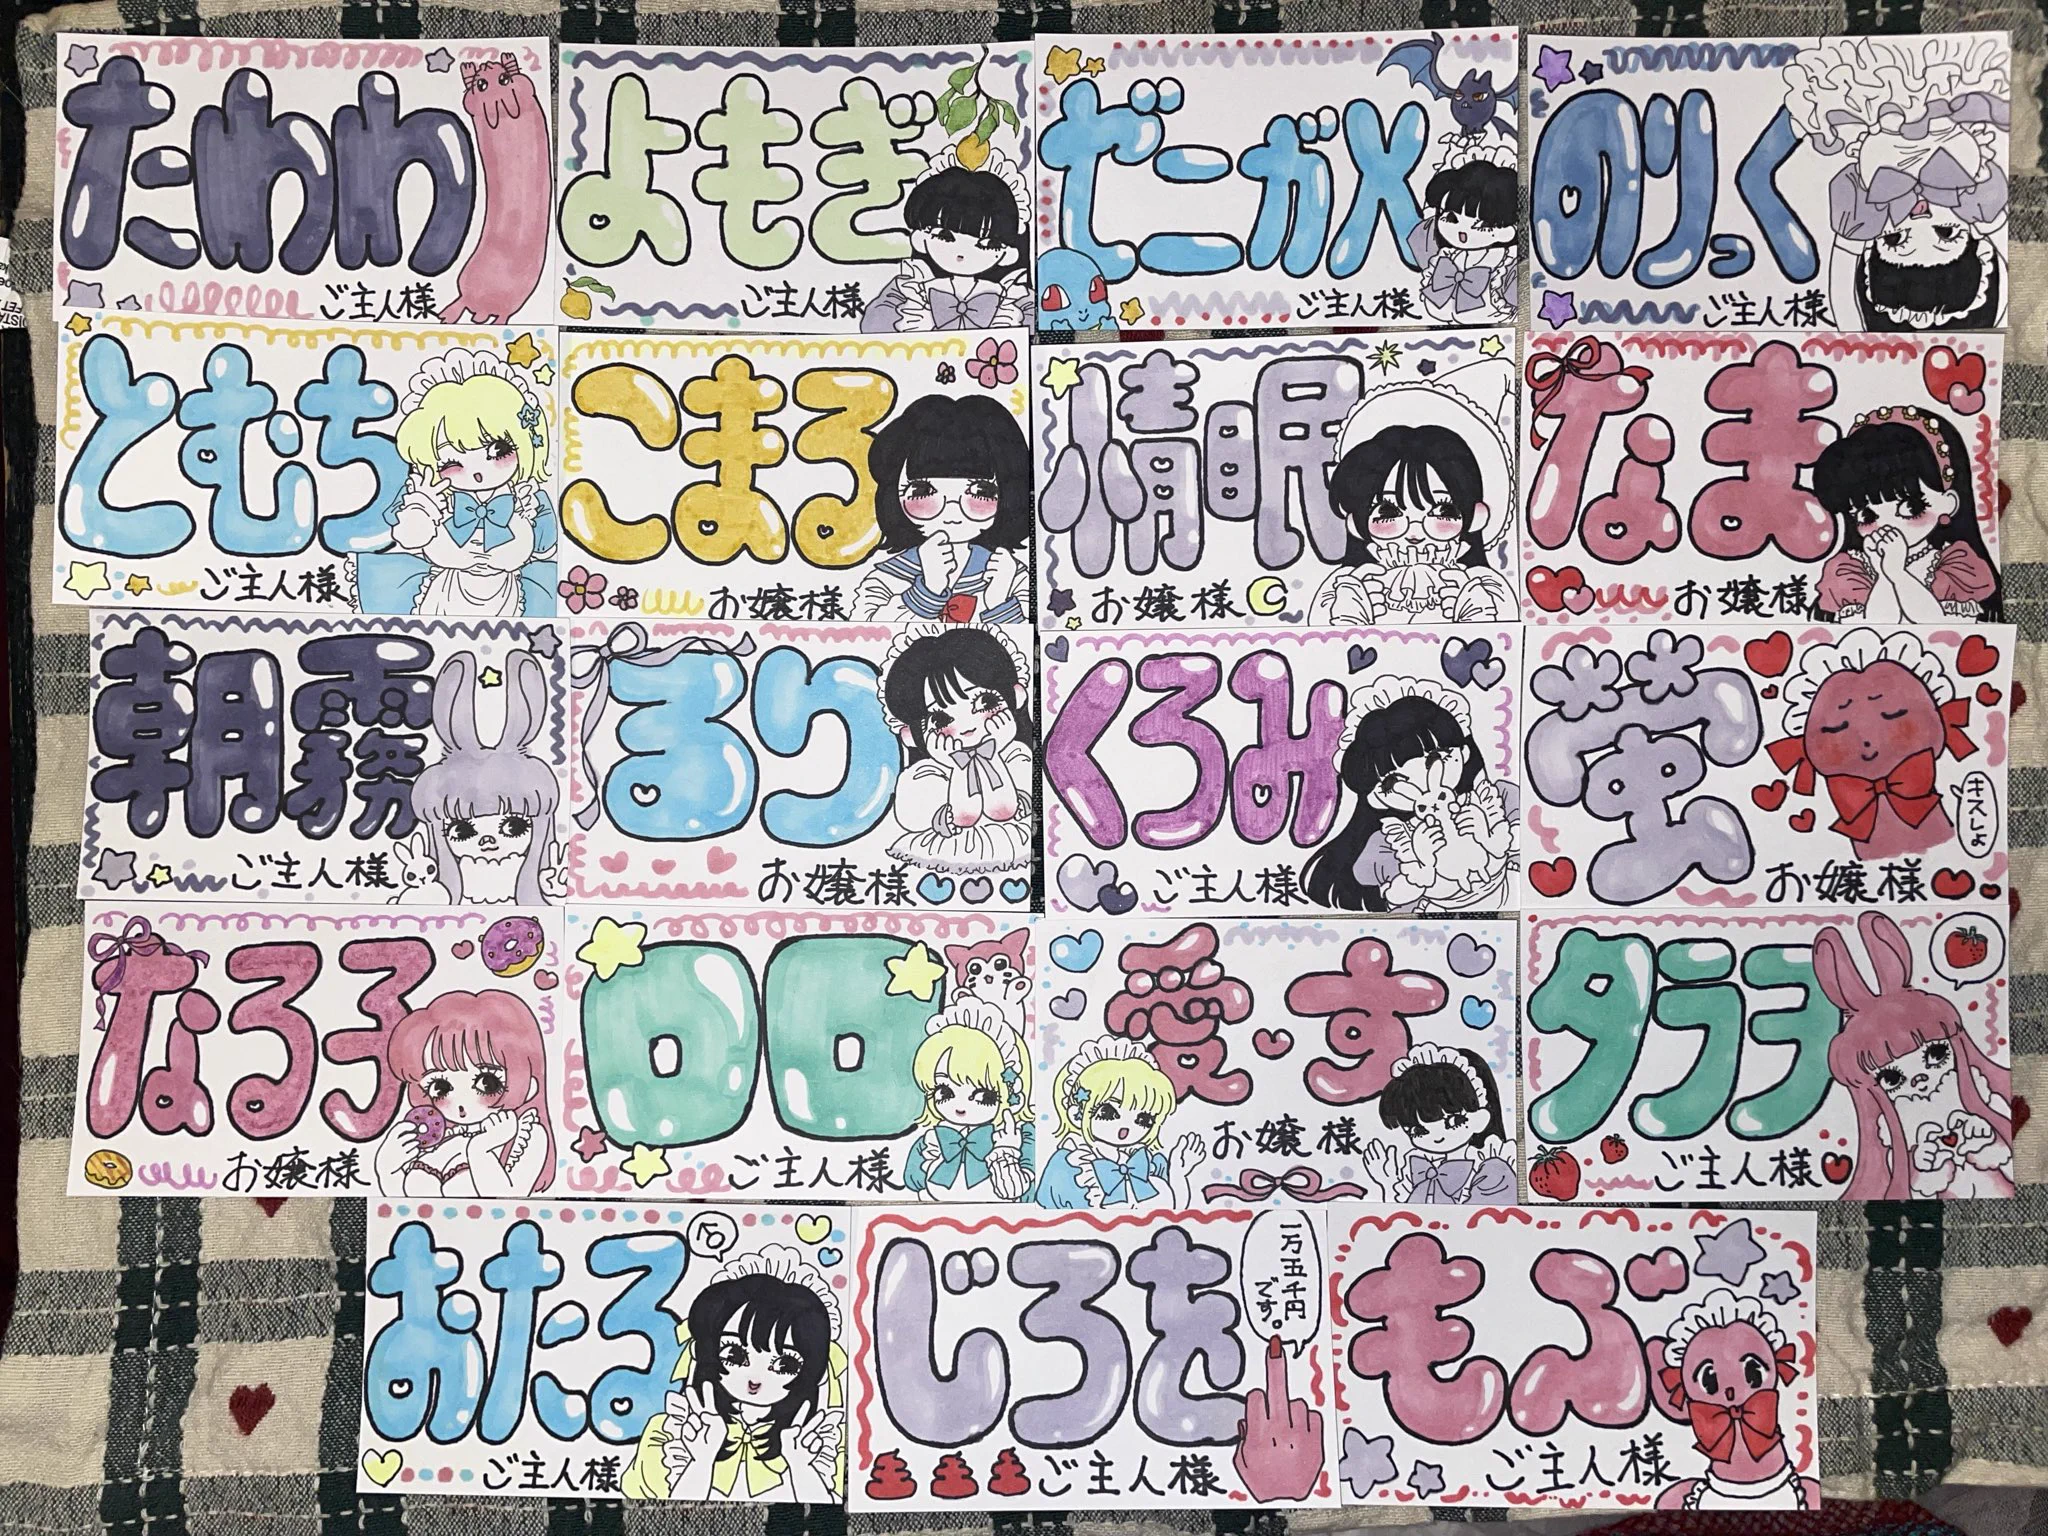 たわわ
ご主人様
よもぎ
ご主人様
ゼニガメ
ご主人様
のりっく
ご主人様
とむち
ご主人様
こまる
お嬢様
情眠
お嬢様
なま
お嬢様
朝霧
ご主人様
るり
お嬢様
くろみ
ご主人様
蛍
お嬢様
キスしよ
なるろ
お嬢様
ロロ
ご主人様
愛す
お嬢様
タラヲ
ご主人様
おたる
ご主人様
じろを
一万五千円
です。
ご主人様
もぶ
ご主人様